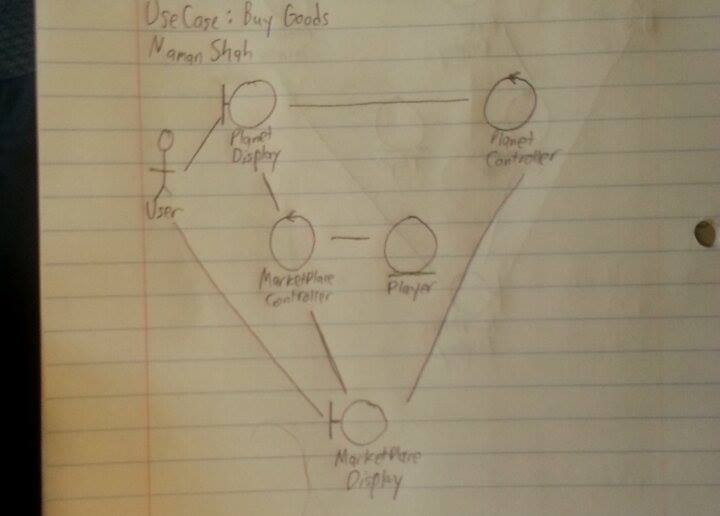 Use Case: Buy Goods
Naman Shah
Planet
Display
Planet
Controller
User
MarketPlace
Controller
Player
MarketPlace
Display